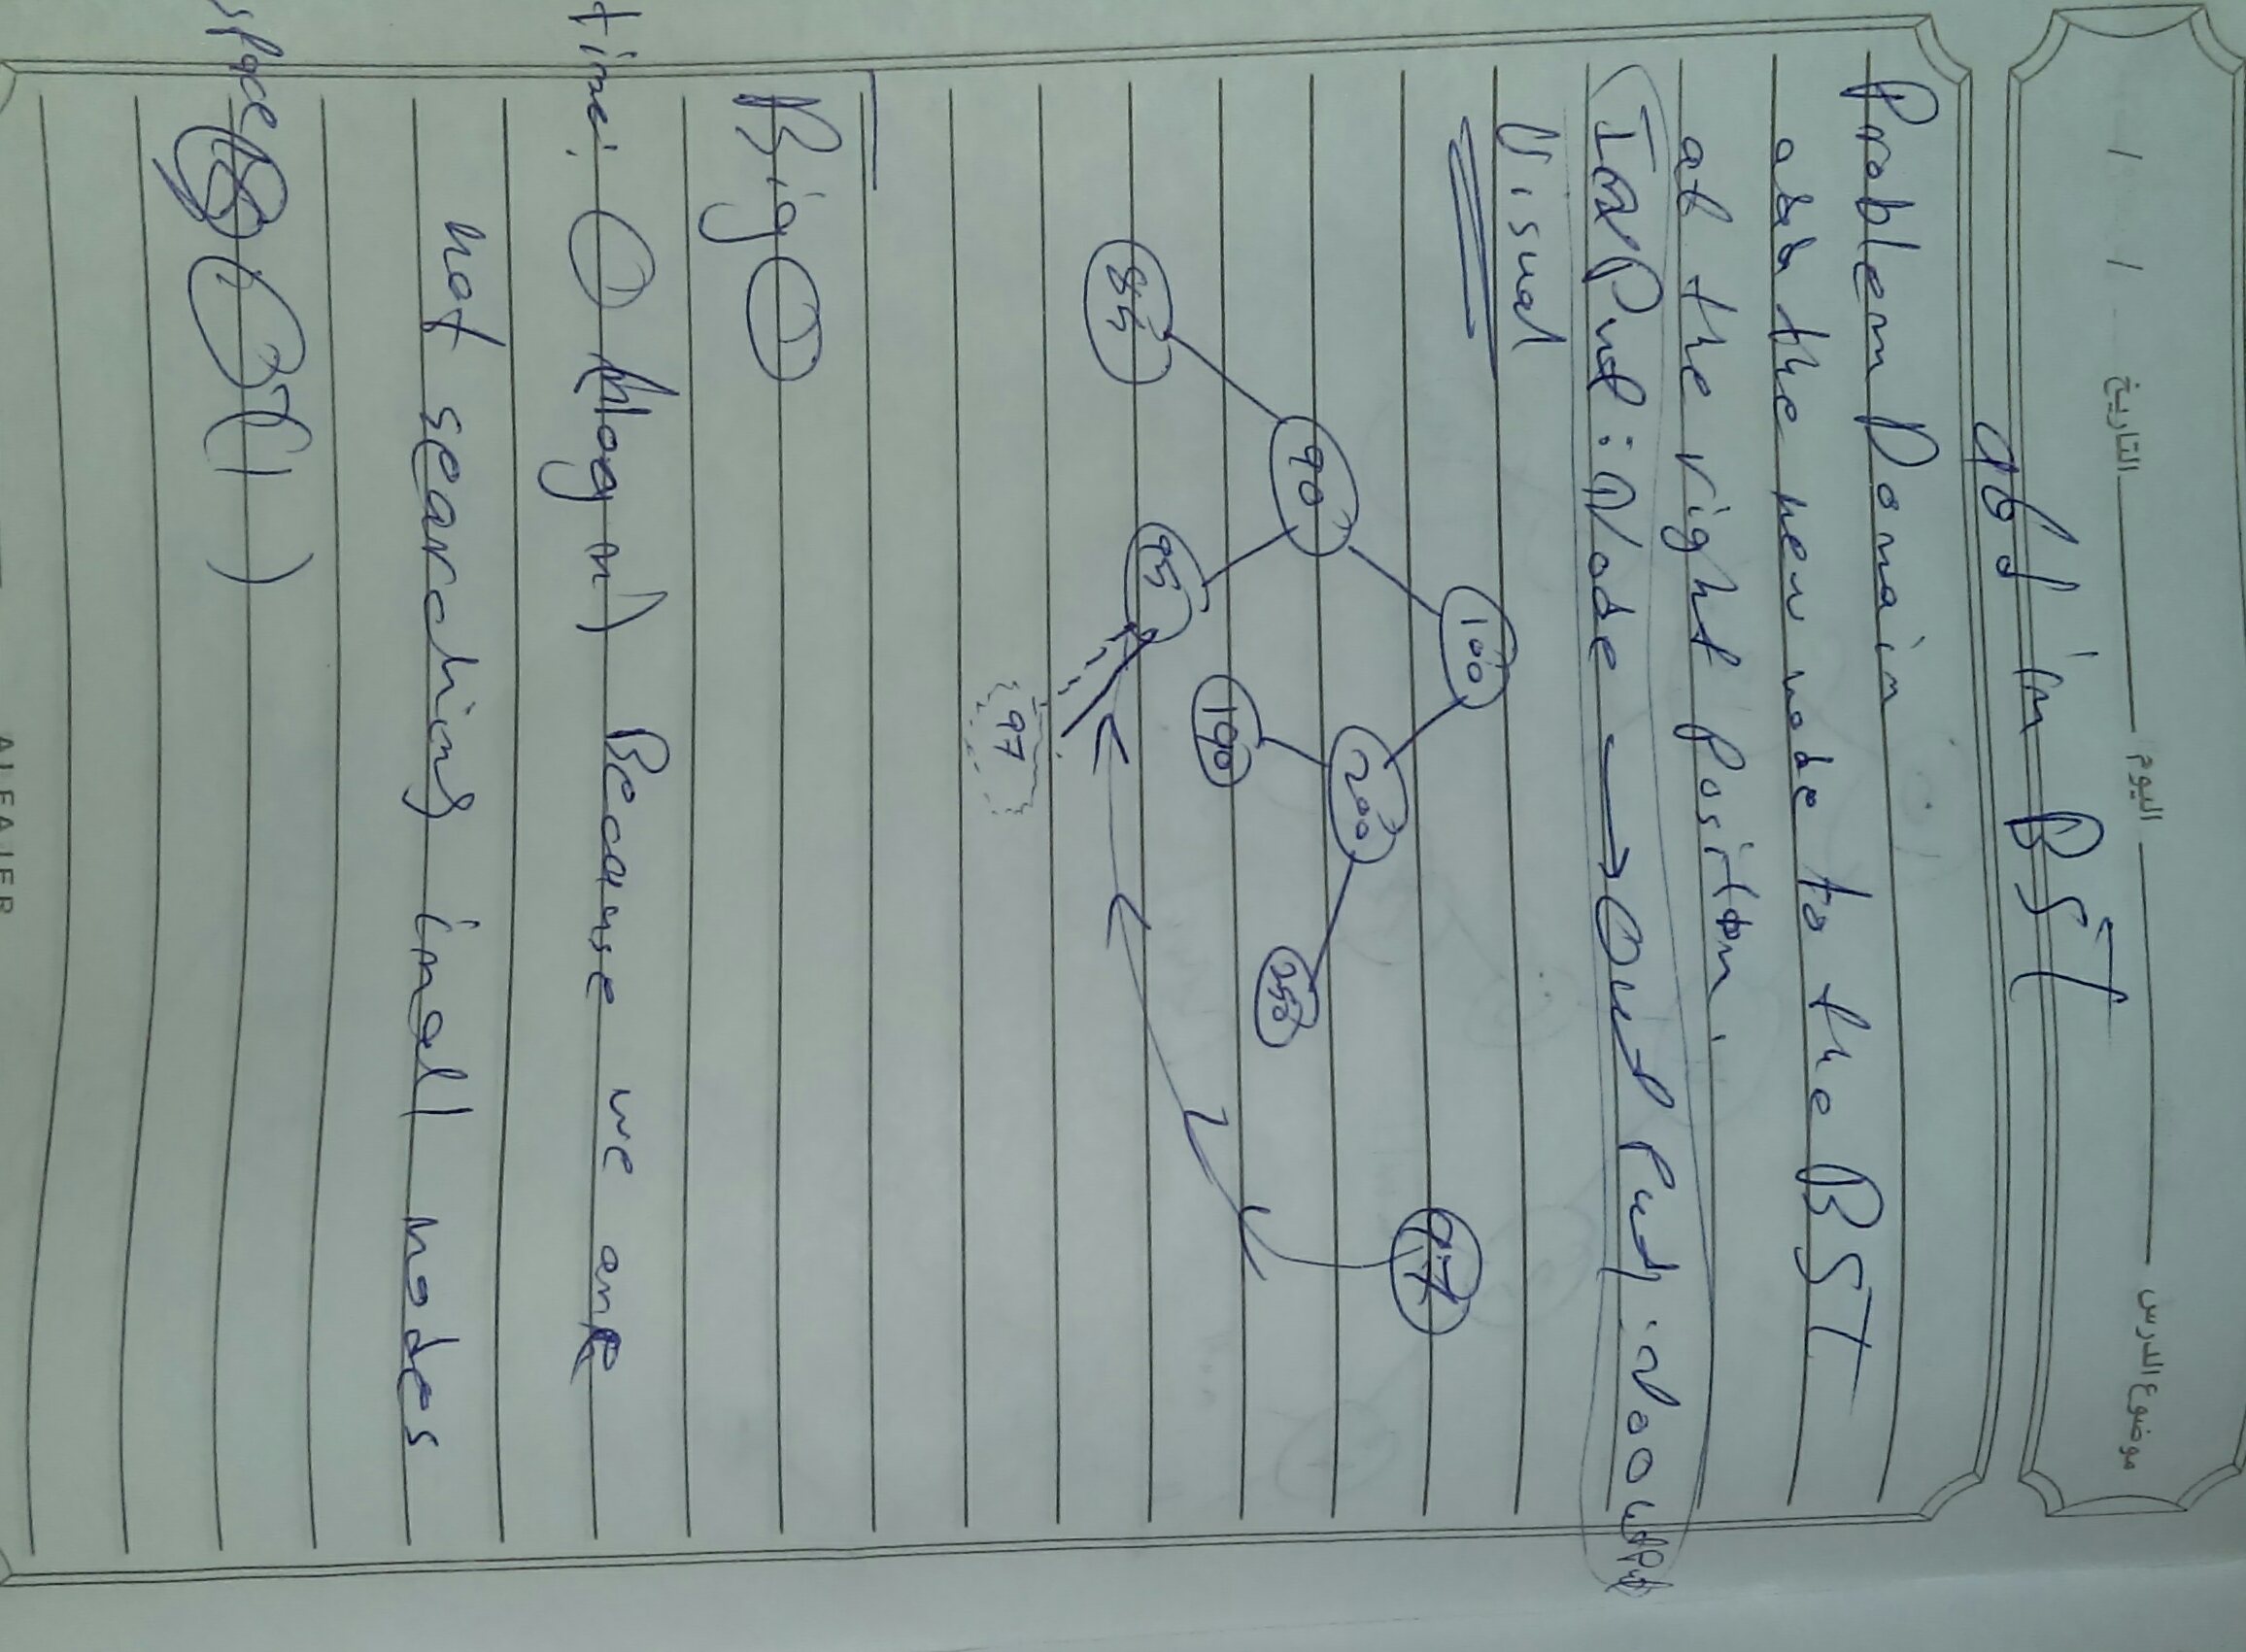 التاريخ / / اليوم موضوع الدرس
add in BST
Problem Domain
add the new node to the BST
at the right position.
Input: Node → Output: No output
Visual
100
97
90 200
85 95 190 250
97
Big O
time: O(log n) Because we are
not searching in all nodes
space O(1)
ALFAJER